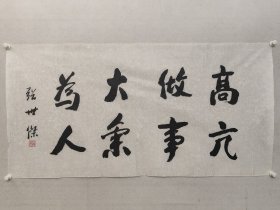 高亢
做事
大氣
為人
世傑